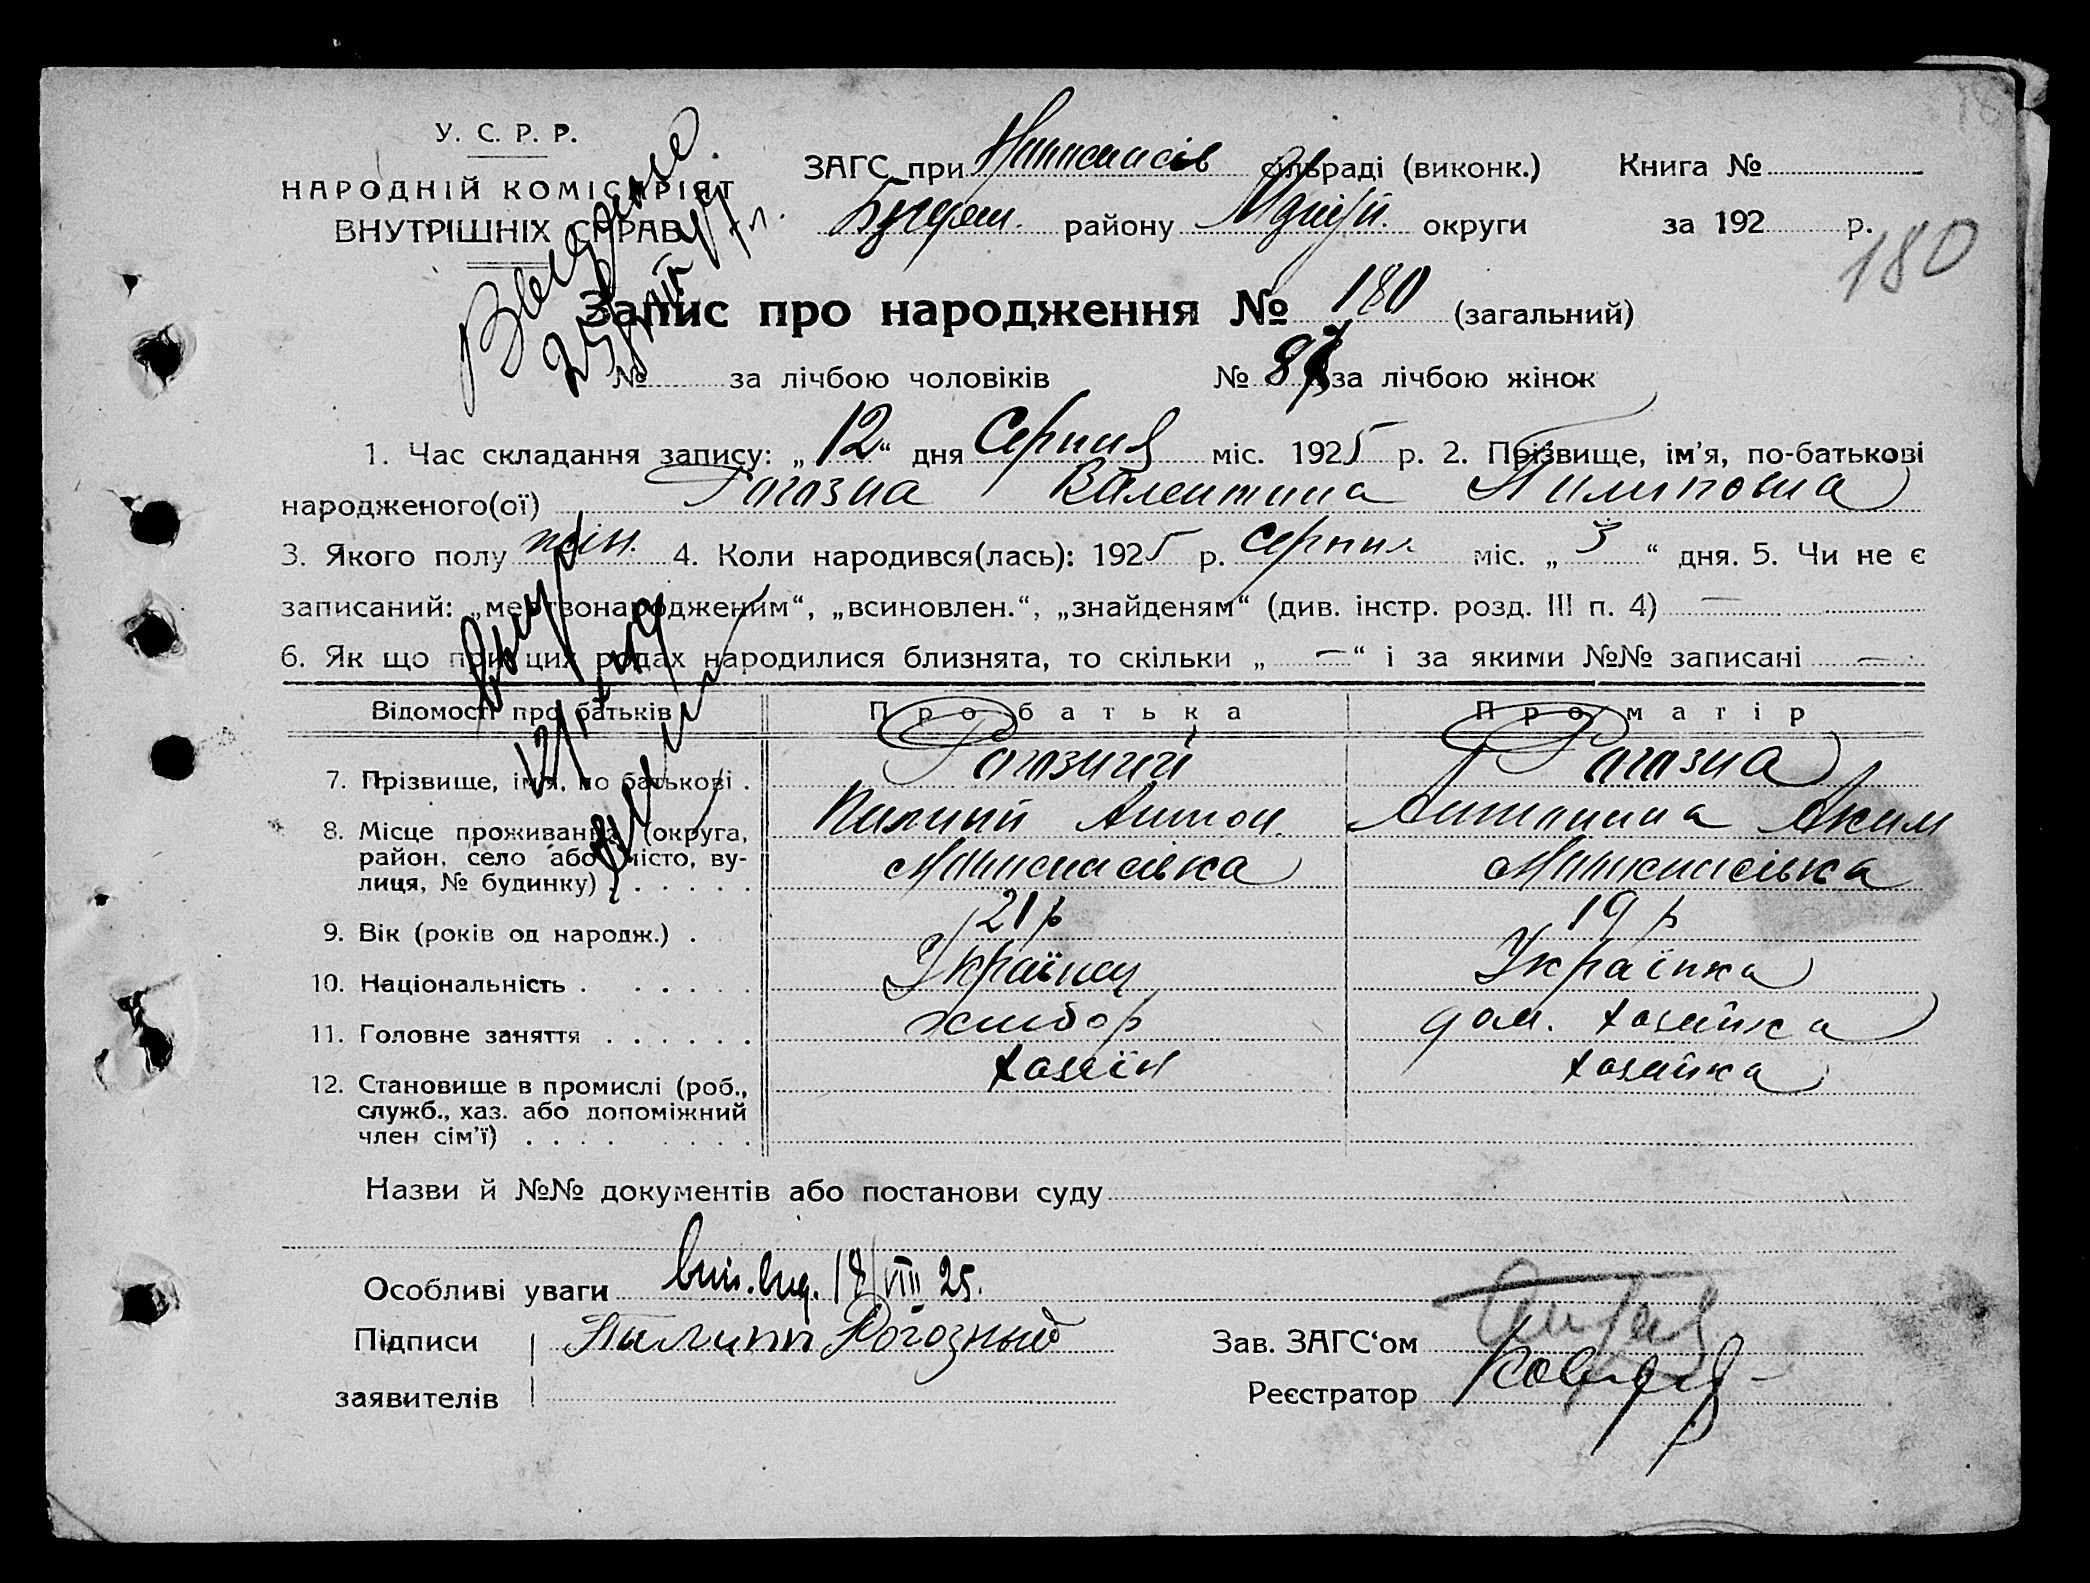 У. С. Р. Р.
НАРОДНІЙ КОМІСАРІЯТ
ВНУТРІШНІХ СПРАВ
ЗАГС при сільраді (виконк.) Книга №
району округи за 192 р.
180
Запис про народження № 180 (загальний)
№ за лічбою чоловіків № 87 за лічбою жінок
1. Час складання запису: „12“ дня Серпня міс. 1925 р. 2. Прізвище, ім'я, по-батькові
народженого(ої) Рогозна Валентина Пилиповна
3. Якого полу жін. 4. Коли народився(лась): 1925 р. серпня міс. „3“ дня. 5. Чи не є
записаний: „мертвонародженим“, „всиновлен.“, „знайденям“ (див. інстр. розд. III п. 4) —
6. Як що при цих родах народилися близнята, то скільки „—“ і за якими №№ записані —
Відомості про батьків Про батька Про матір
7. Прізвище, ім'я, по батькові . Рогозний Рогозна
Пилип Антон. Антонина Аким
8. Місце проживання (округа,
район, село або місто, ву-
лиця, № будинку) . . . . . .
9. Вік (років од народж.) . 21 р 19 р
10. Національність . . . . . . Українец Українка
11. Головне заняття . . . . . . хлібор дом. хозяйка
12. Становище в промислі (роб.,
служб., хаз. або допоміжний
член сім'ї) . . . . . . . . хозяїн хозяйка
Назви й №№ документів або постанови суду
Особливі уваги вип. вид. 18/VIII 25.
Підписи Пилипп Рогозный Зав. ЗАГС'ом
заявителів Реєстратор